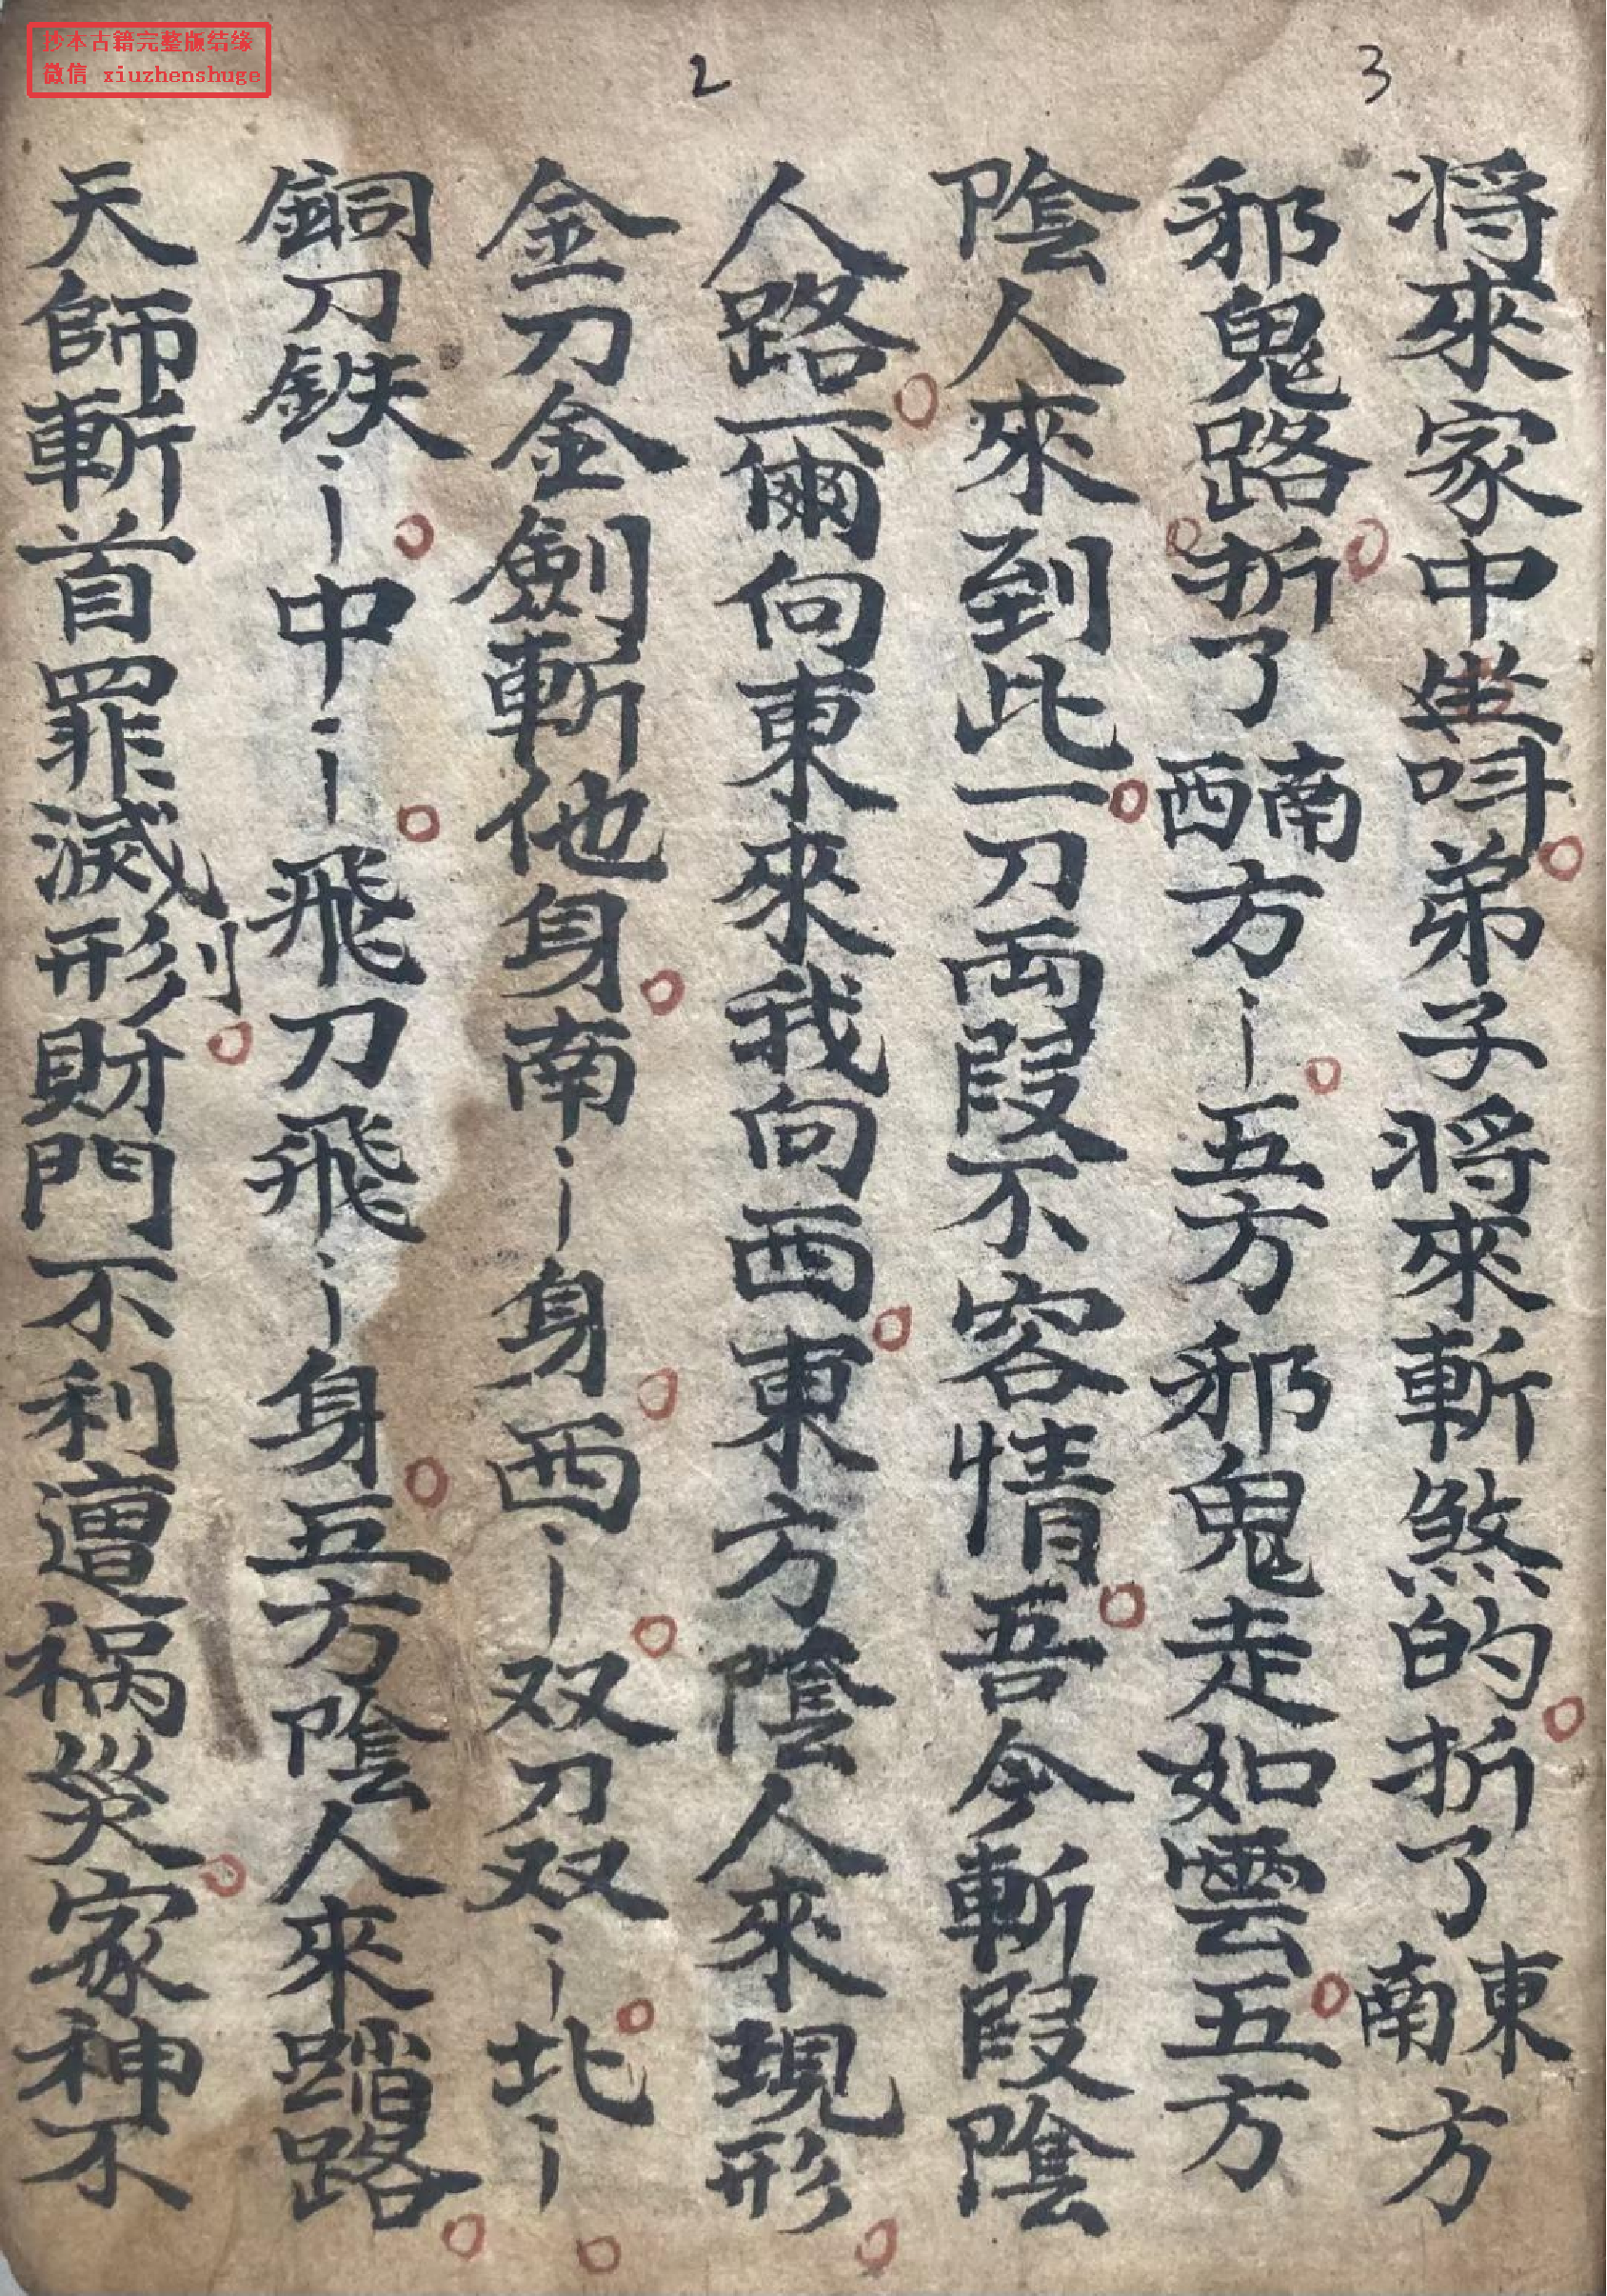 抄本古籍完整版结缘
微信 xiuzhenshuge
2
3
将來家中坐叫弟子将來斬煞的折了東南方
邪鬼路折了南西方〻五方邪鬼走如雲五方
陰人來到此一刀两段不容情吾今斬段陰陰
人路一爾向東來我向西東方陰人來現形
金刀金劍斬他身南〻身西〻双刀双〻北〻
銅刀鉄〻中〻飛刀飛〻身五方陰人來踏路
天師斬首罪滅形刑財門不利遭祸災家神不